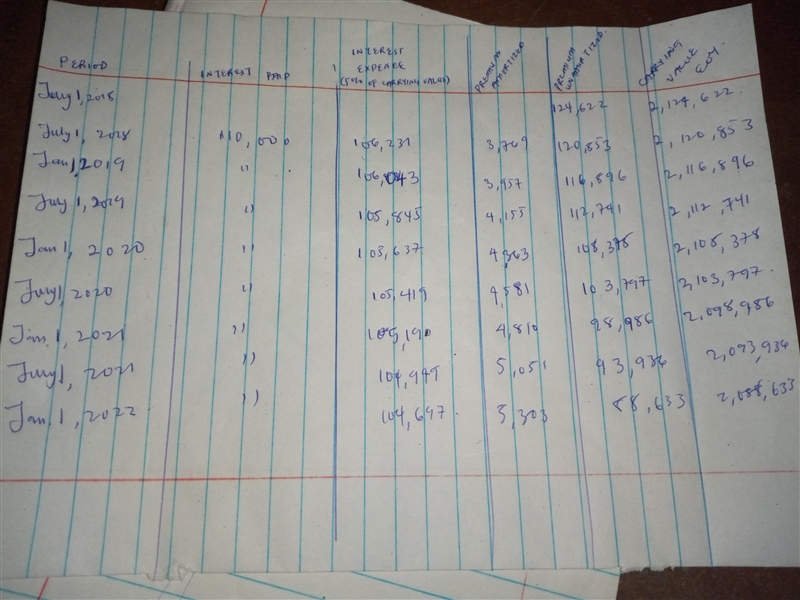 PERIOD INTEREST PAID INTEREST EXPENSE (5% OF CARRYING VALUE) PREMIUM AMORTIZED PREMIUM UNAMORTIZED CARRYING VALUE EOY.
1, 2018 124,622 2,124,622.
July 1, 2018 110,000 106,231 3,769 120,853 2,120,853
Jan 1, 2019 " 106,043 3,957 116,896 2,116,896
July 1, 2019 " 105,845 4,155 112,741 2,112,741
Jan 1, 2020 " 105,637 4,363 108,378 2,108,378
July 1, 2020 " 105,419 4,581 103,797 2,103,797.
Jan. 1, 2021 " 105,190 4,810 98,986 2,098,986
July 1, 2021 " 104,949 5,051 93,936 2,093,936
Jan. 1, 2022 " 104,697 5,303 88,633 2,088,633